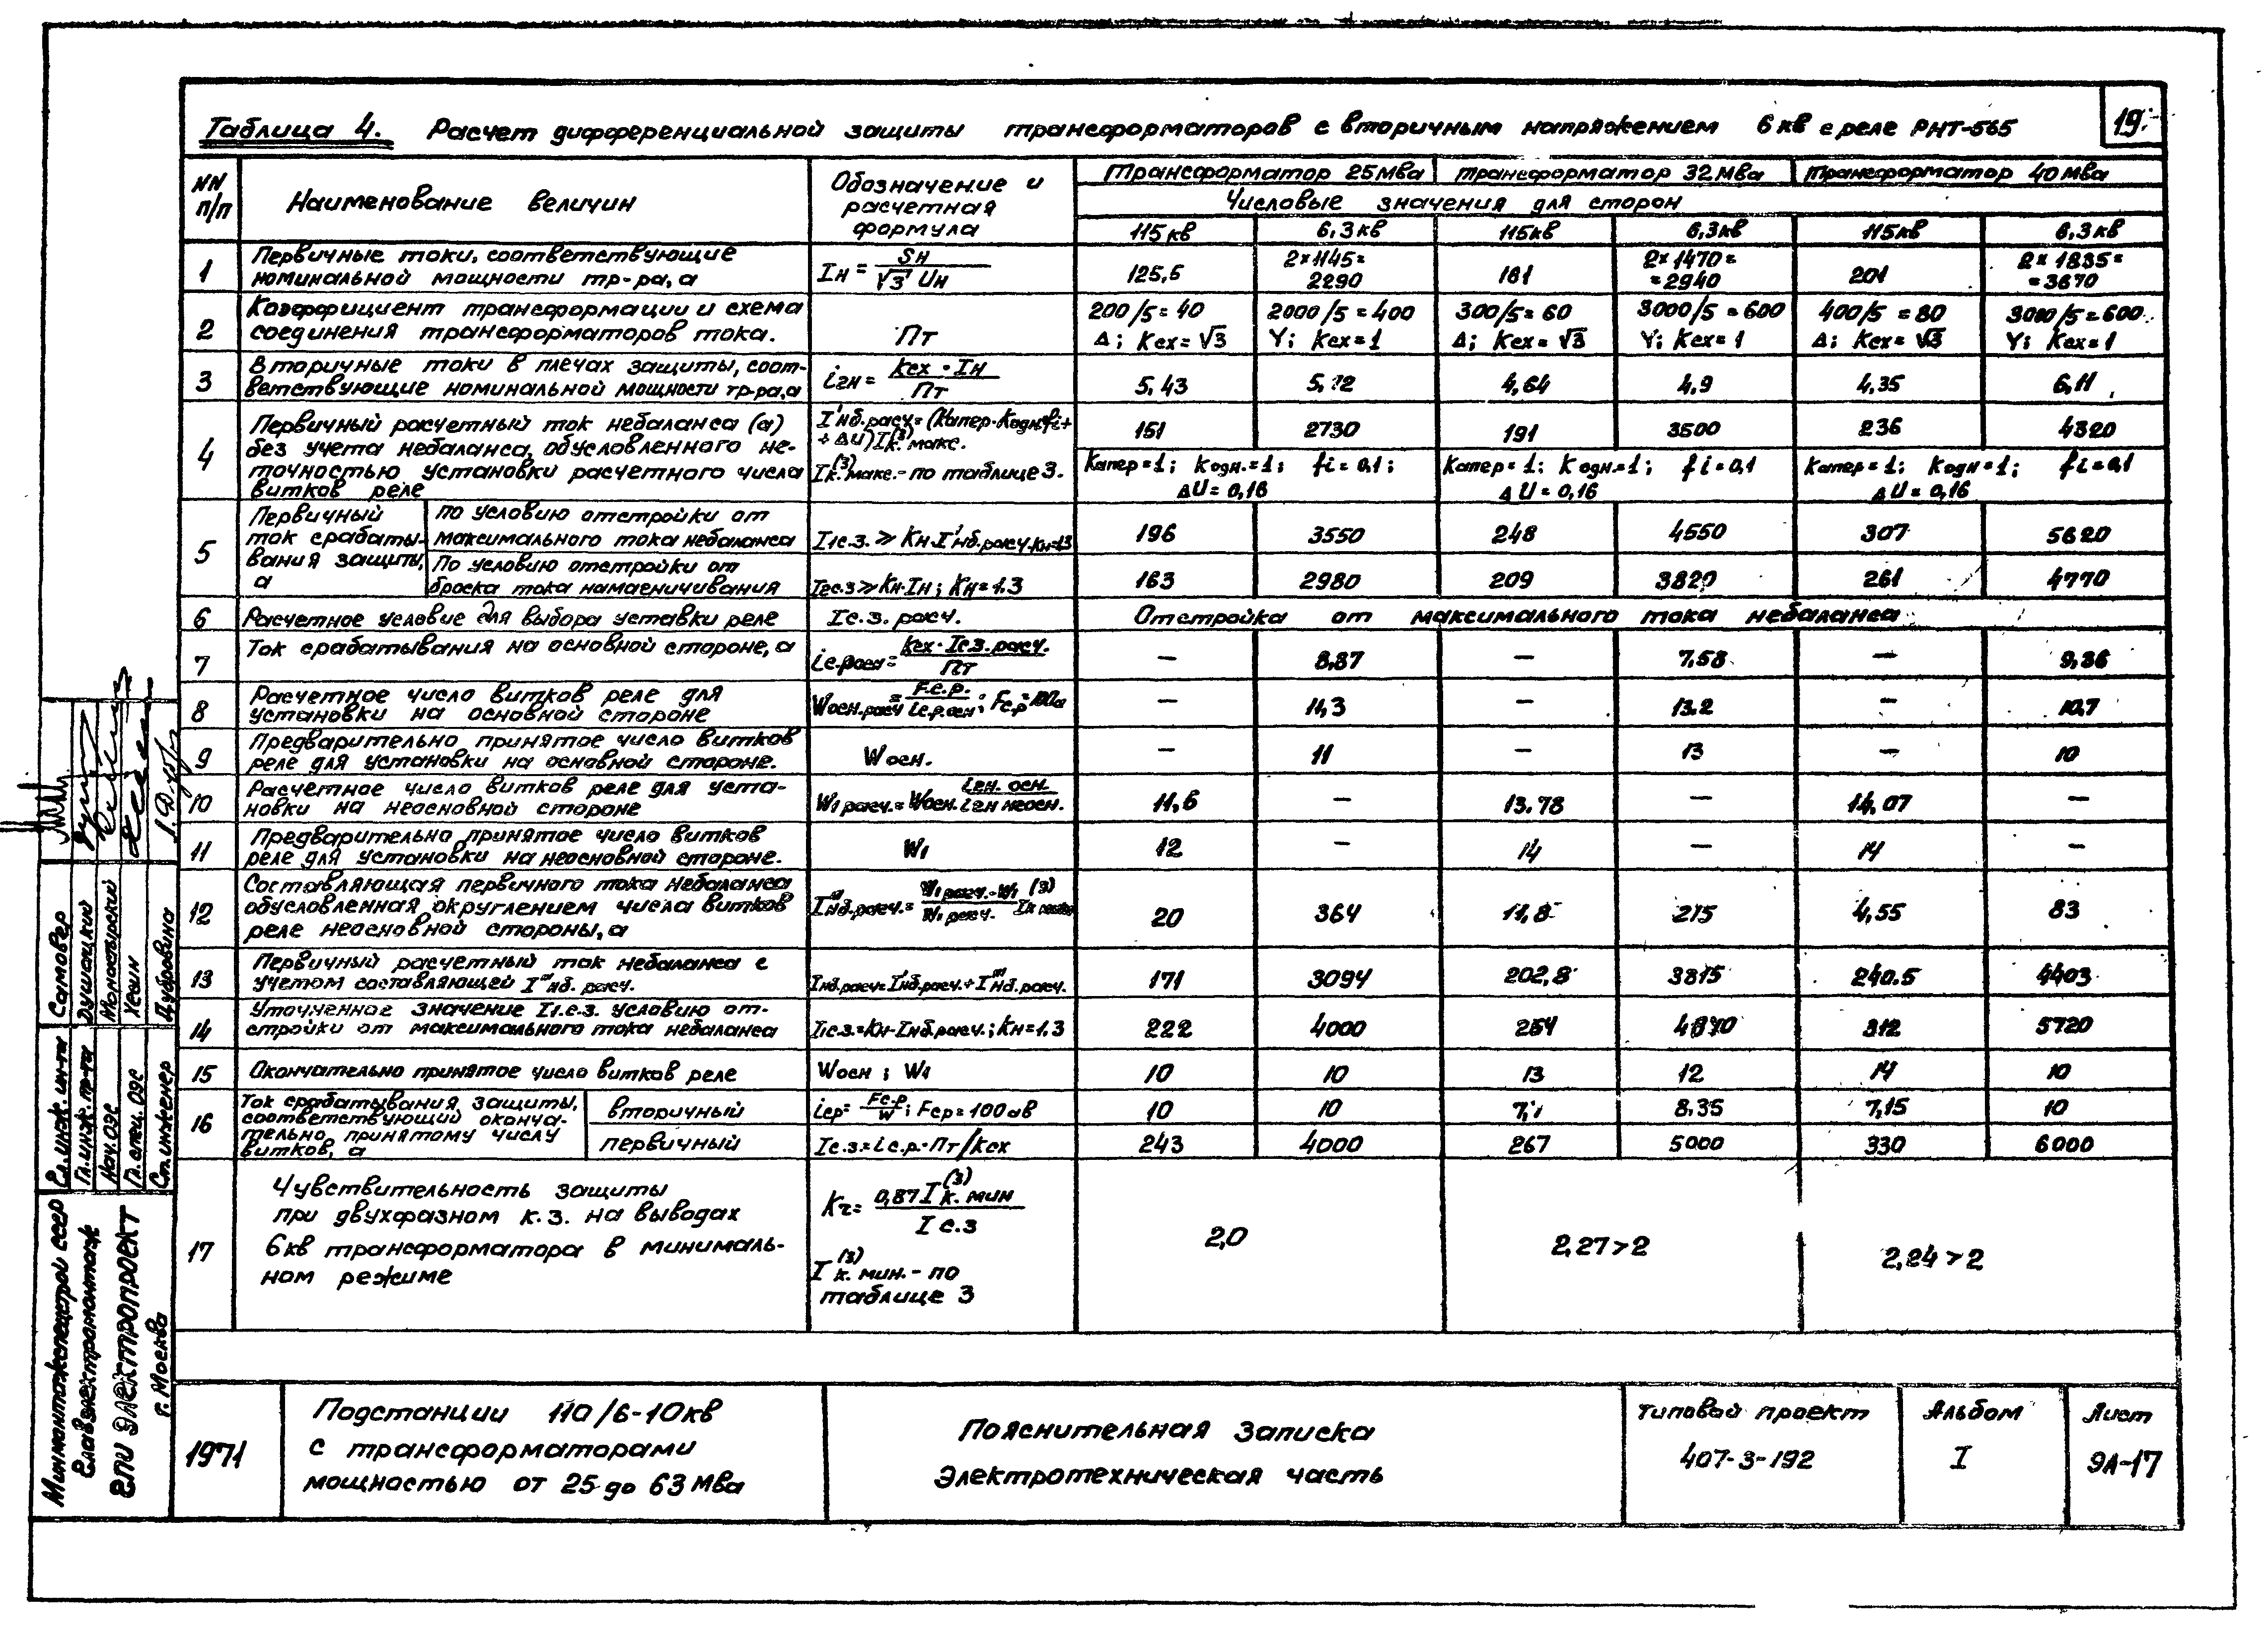 19.
Таблица 4. Расчет дифференциальной защиты трансформаторов с вторичным напряжением 6 кв с реле РНТ-565
NN п/п
Наименование величин
Обозначение и расчетная формула
Трансформатор 25 Мва трансформатор 32 Мва трансформатор 40 Мва
Числовые значения для сторон
115 кв 6,3 кв 115 кв 6,3 кв 115 кв 6,3 кв
1 Первичные токи, соответствующие
номинальной мощности тр-ра, а
Iн = Sн / √3 Uн
125,5 2×1145= 2290 161 2×1470= =2940 201 2×1835= =3670
2 Коэффициент трансформации и схема
соединения трансформаторов тока.
Пт
200/5=40 2000/5=400 300/5=60 3000/5=600 400/5=80 3000/5=600
Δ; Ксх=√3 Y; Ксх=1 Δ; Ксх=√3 Y; Ксх=1 Δ; Ксх=√3 Y; Ксх=1
3 Вторичные токи в плечах защиты, соот-
ветствующие номинальной мощности тр-ра, а
i2н = Ксх · Iн / Пт
5,43 5,72 4,64 4,9 4,35 6,11
4 Первичный расчетный ток небаланса (а)
без учета небаланса, обусловленного не-
точностью установки расчетного числа
витков реле
I'нб.расч=(Капер·Кодн·fi+
+ΔU)I(3)к.макс.
I(3)к.макс.-по таблице 3.
151 2730 191 3500 236 4320
Капер=1; Кодн.=1; fi=0,1; Капер=1; Кодн.=1; fi=0,1 Капер=1; Кодн=1; fi=0,1
ΔU=0,16 ΔU=0,16 ΔU=0,16
5 Первичный
ток срабаты-
вания защиты,
а
по условию отстройки от
максимального тока небаланса
I1с.з. ≥ Кн·I'нб.расч. Кн=1.3
196 3550 248 4550 307 5620
По условию отстройки от
броска тока намагничивания
I2с.з ≥ Кн·Iн; Кн=1.3
163 2980 209 3820 261 4770
6 Расчетное условие для выбора уставки реле Iс.з. расч. Отстройка от максимального тока небаланса
7 Ток срабатывания на основной стороне, а
iс.р.осн= Ксх·Iс.з.расч. / Пт
— 8,87 — 7,58 — 9,36
8 Расчетное число витков реле для
установки на основной стороне
Wосн.расч = Fс.р. / iс.р.осн; Fс.р=100а
— 11,3 — 13.2 — 10,7
9 Предварительно принятое число витков
реле для установки на основной стороне.
Wосн.
— 11 — 13 — 10
10 Расчетное число витков реле для уста-
новки на неосновной стороне
W1 расч.=Wосн. i2н.осн. / i2н неосн.
11,6 — 13.78 — 14,07 —
11 Предварительно принятое число витков
реле для установки на неосновной стороне.
W1
12 — 14 — 14 —
12 Составляющая первичного тока небаланса
обусловленная округлением числа витков
реле неосновной стороны, а
I'''нб.расч.= W1 расч.-W1 / W1 расч. I(3)к
20 364 11,8 275 4,55 83
13 Первичный расчетный ток небаланса с
учетом составляющей I'''нб. расч.
Iнб.расч=I'нб.расч.+I'''нб.расч.
171 3094 202,8 3815 240.5 4403
14 Уточненное значение I1.с.з. условию от-
стройки от максимального тока небаланса
I1с.з.=Кн·Iнб.расч.; Кн=1.3
222 4000 264 312 5720
15 Окончательно принятое число витков реле
Wосн; W1
10 10 13 12 14 10
16 Ток срабатывания защиты,
соответствующий оконча-
тельно принятому числу
витков, а
вторичный iср= Fс.р / W; Fср=100 ав
10 10 7,7 8,35 7,15 10
первичный Iс.з=iс.р.·Пт/Ксх
243 4000 267 5000 330 6000
17 Чувствительность защиты
при двухфазном к.з. на выводах
6кв трансформатора в минималь-
ном режиме
Кч= 0,87I(3)к.мин / Iс.з
I(3)к.мин.-по
таблице 3
2,0 2,27>2 2,24>2
1971
Подстанции 110/6-10кв
с трансформаторами
мощностью от 25 до 63 Мва
Пояснительная записка
Электротехническая часть
Типовой проект
407-3-192
Альбом
I
Лист
ЭА-17
Минмонтажспецстрой СССР
Главэлектромонтаж
ГПИ Электропроект
г. Москва
Гл. инж. ин-та Самовер
Гл. инж. пр-та Душацкий
Нач. ОЭС Монастырский
Гл. спец. ОЭС Хесин
Ст. инженер Дубровина